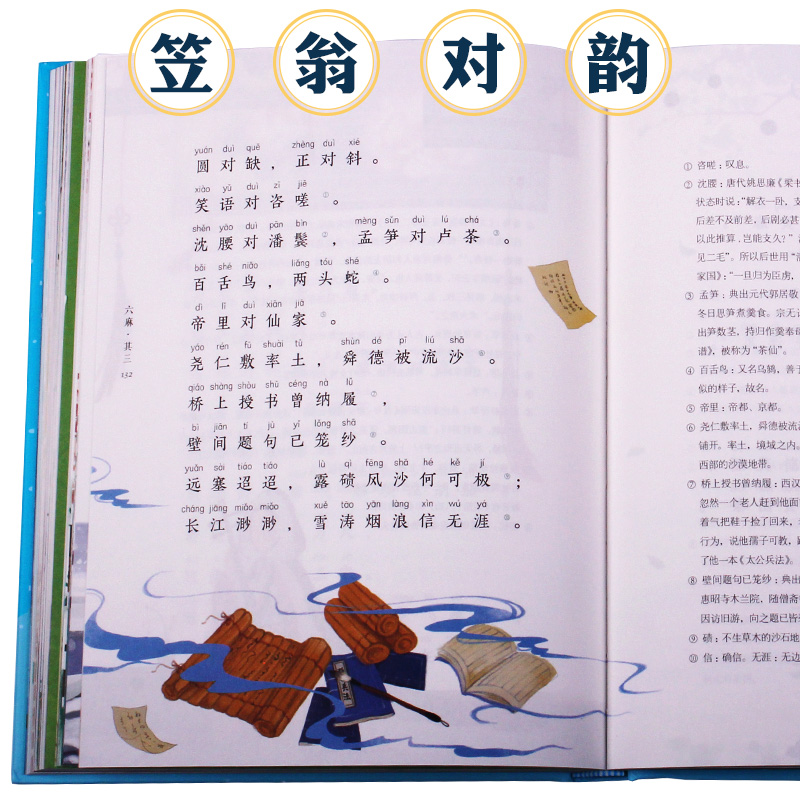 笠翁对韵
yuán duì quē zhèng duì xié
圆对缺，正对斜。
xiào yǔ duì zī jiē
笑语对咨嗟①。
shěn yāo duì pān bìn mèng sǔn duì lú chá
沈腰对潘鬓②，孟笋对卢茶③。
bǎi shé niǎo liǎng tóu shé
百舌鸟，两头蛇④。
dì lǐ duì xiān jiā
帝里对仙家⑤。
yáo rén fū shuài tǔ shùn dé pī liú shā
尧仁敷率土，舜德被流沙⑥。
qiáo shàng shòu shū céng nà lǚ
桥上授书曾纳履⑦，
bì jiān tí jù yǐ lǒng shā
壁间题句已笼纱⑧。
yuǎn sài tiáo tiáo lù qì fēng shā hé kě jí
远塞迢迢，露碛风沙何可极⑨；
cháng jiāng miǎo miǎo xuě tāo yān làng xìn wú yá
长江渺渺，雪涛烟浪信无涯⑩。
六麻·其三
132
① 咨嗟：叹息。
② 沈腰：唐代姚思廉《梁书
状态时说：“解衣一卧，支
后差不及前差，后剧必甚
以此推算，岂能支久？”
见二毛”。所以后世用“
家国》：“一旦归为臣虏，
③ 孟笋：典出元代郭居敬
冬日思笋煮羹食。宗无
出笋数茎，持归作羹奉母
谱》，被称为“茶仙”。
④ 百舌鸟：又名乌鸫，善于
似的样子，故名。
⑤ 帝里：帝都、京都。
⑥ 尧仁敷率土，舜德被流
铺开。率土，境域之内。
西部的沙漠地带。
⑦ 桥上授书曾纳履：西汉
忽然一个老人赶到他面
着气把鞋子捡了回来，
行为，说他孺子可教，
了他一本《太公兵法》。
⑧ 壁间题句已笼纱：典出
惠昭寺木兰院，随僧斋
因访旧游，向之题已皆
⑨ 碛：不生草木的沙石地
⑩ 信：确信。无涯：无边